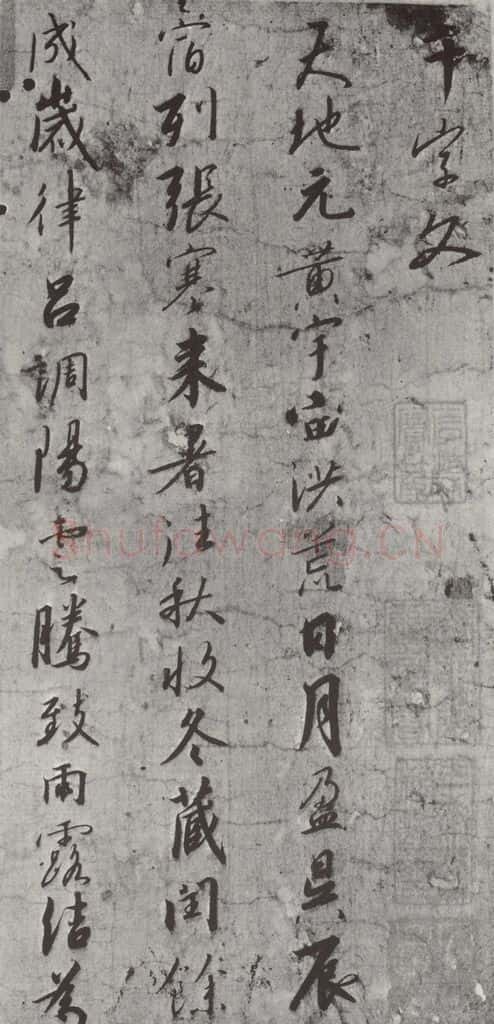 千字文
天地元黃宇宙洪荒日月盈昃辰
宿列張寒来暑往秋收冬藏閏餘
成歲律呂調陽雲騰致雨露結為
shufawang.CN